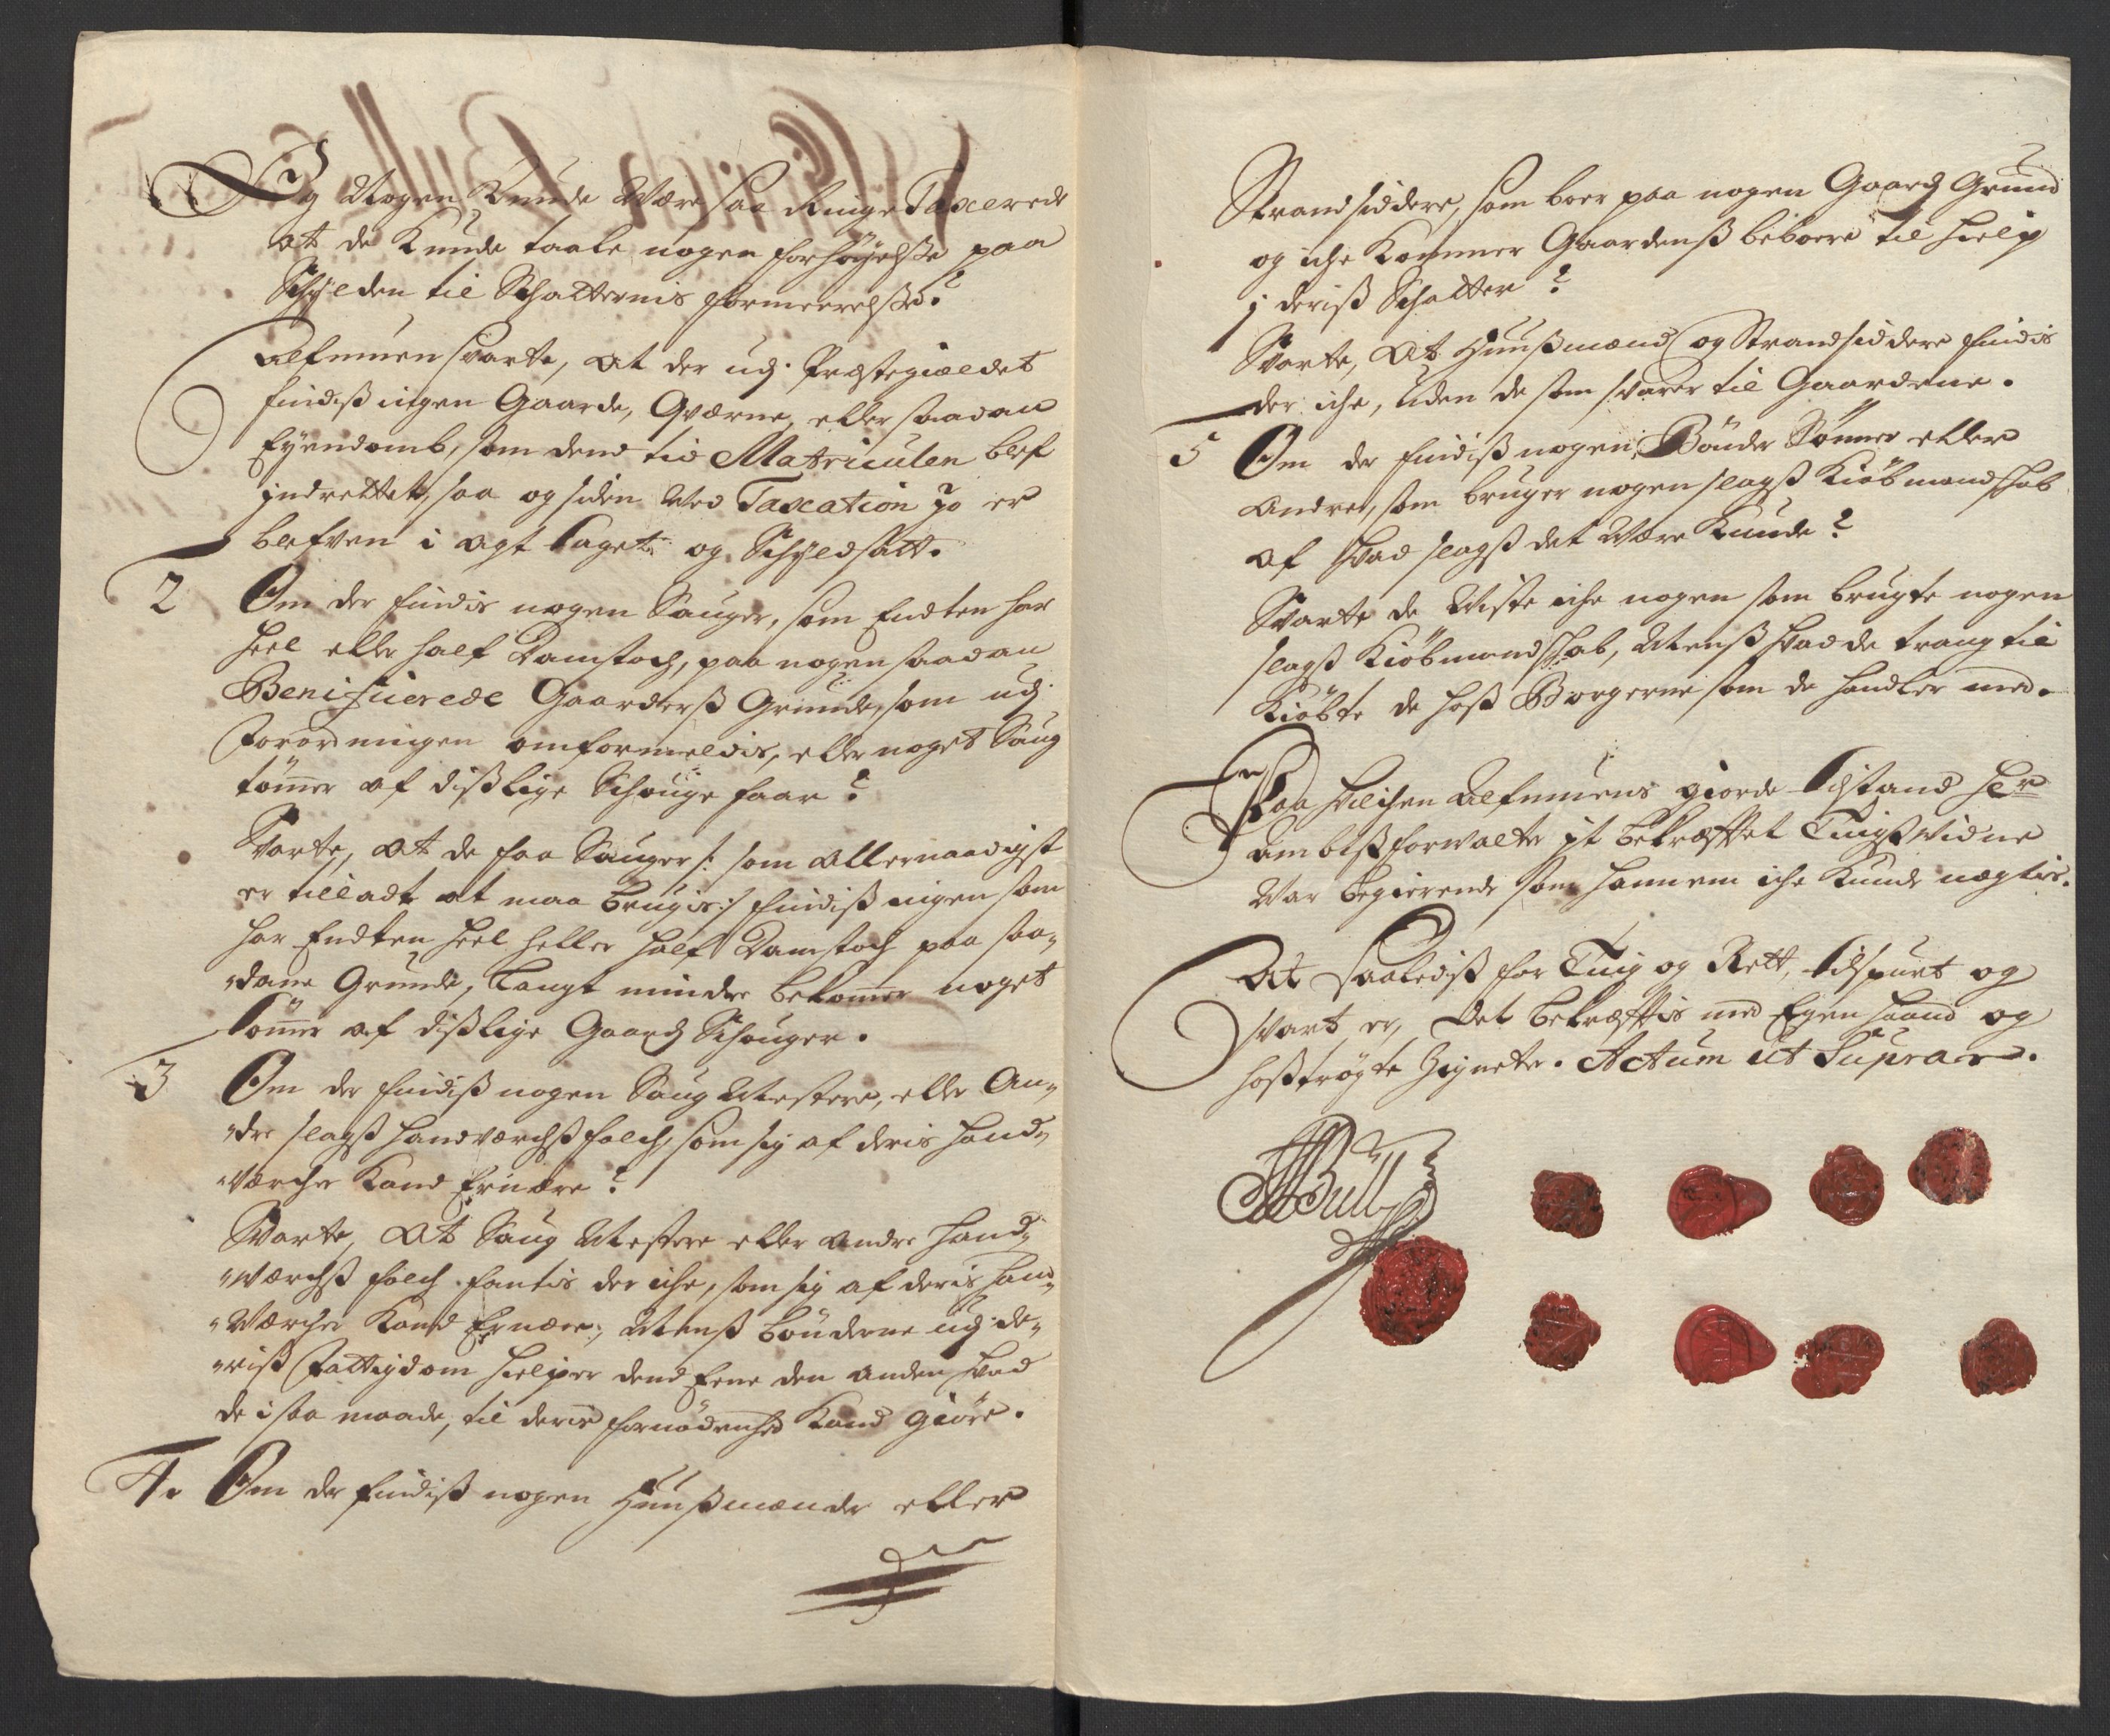 Og Nogen Kunde Være saa Ringe Taxerede
at de Kunde taale nogen forhøyelsse paa
Schylden til Schatternis formeerelsse?
Alfmuen svarte, at der udj Præstegieldet
findiß ingen Gaarde, Qværne, eller saadan
Eyendomb, som dend tid Matriculen blef
jndrettet, saa og siden ved Taxation jo er
blefven i agt taget og Schyldsatt.
2 Om der findis nogen Sauger, som Endten har
heel eller half Damstoch, paa nogen saadan
Benificerede Gaarderß Grunde, som udj
Forordningen omformeldis, eller noget Saug
tømer af dißlige Schouge faar?
Svarte, at de faa Sauger /: som allernaadigst
er tilladt at maa brugis :/ findiß ingen som
har Endten heel heller half Damstoch paa saa„
„dane Grunde, langt mindre bekomer noget
tømer af dißlige Gaards Schouger.
3 Om der findiß nogen Saug Mestere, eller An„
„dre slagß handverchßfolch, som sig af deris hand„
„vercher Kand Ernære?
Svarte, at Saug Mestere eller andre hand„
„verchß folch fantis der iche, som sig af deris hand„
„Værcher Kand Ernære, Menß bønderne udj de„
„riß Fattigdom hielper dend Eene den anden hvad
de i saa maade, til deris fornødenhed Kand giøre.
4. Om der findiß nogen Huußmænder eller
Strandsiddere, som boer paa nogen Gaards Grund
og iche Kommer Gaardenß beboere til hielp
j deriß Schatter?
Svarte, at Huußmænd og Strandsiddere findis
der iche, uden de som svarer til Gaardene.
5 Om der findiß nogen Bønder Sønner eller
Andre, som bruger nogen slagß Kiøbmandschab
af hvad slagß det Være Kunde?
Svarte de Viste iche nogen som brugte nogen
slagß Kiøbmandschab, Menß hvad de trang til
Kiøbte de hoß Borgerne som de handler med.
Paa hvilchen Alfmuens giorde tilstand Her
Ambtßforvalter it bekræfftet Tingßvidne
Var begierende som hannem iche Kunde negtis.
At saalediß for Ting og Rett, tilspurt og
svart er, Det bekræfftis med Egen haand og
hoßtrøgte Zigneter. Actum ut Supra